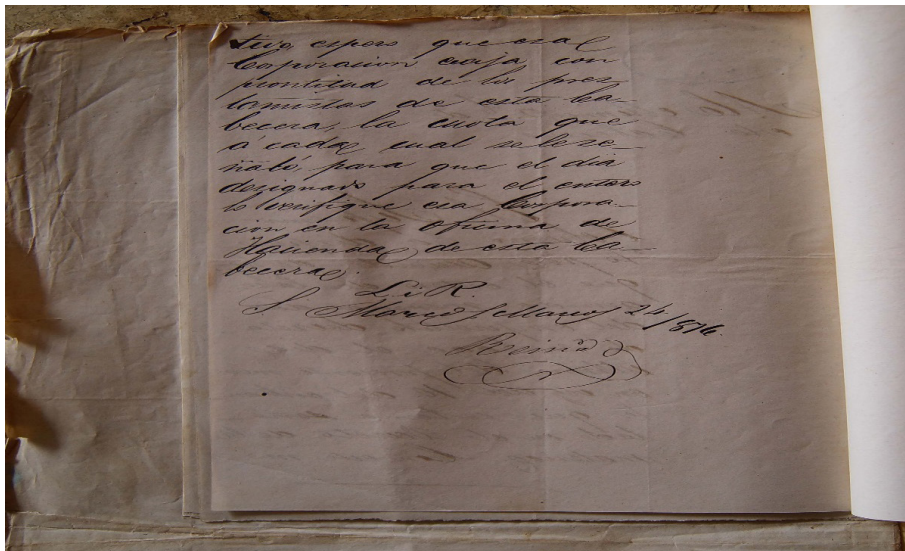 tivo espero que esa
Corporacion exija con
prontitud de los pres-
tamistas de esta Ca-
becera, la cuota que
á cada cual se le se-
ñaló, para que el dia
designado para el entero
lo verifique esa Corpora-
cion en la oficina de
Hacienda de esta Ca-
becera.
L. i R.
S Marcos Marzo 24/876.
Reina